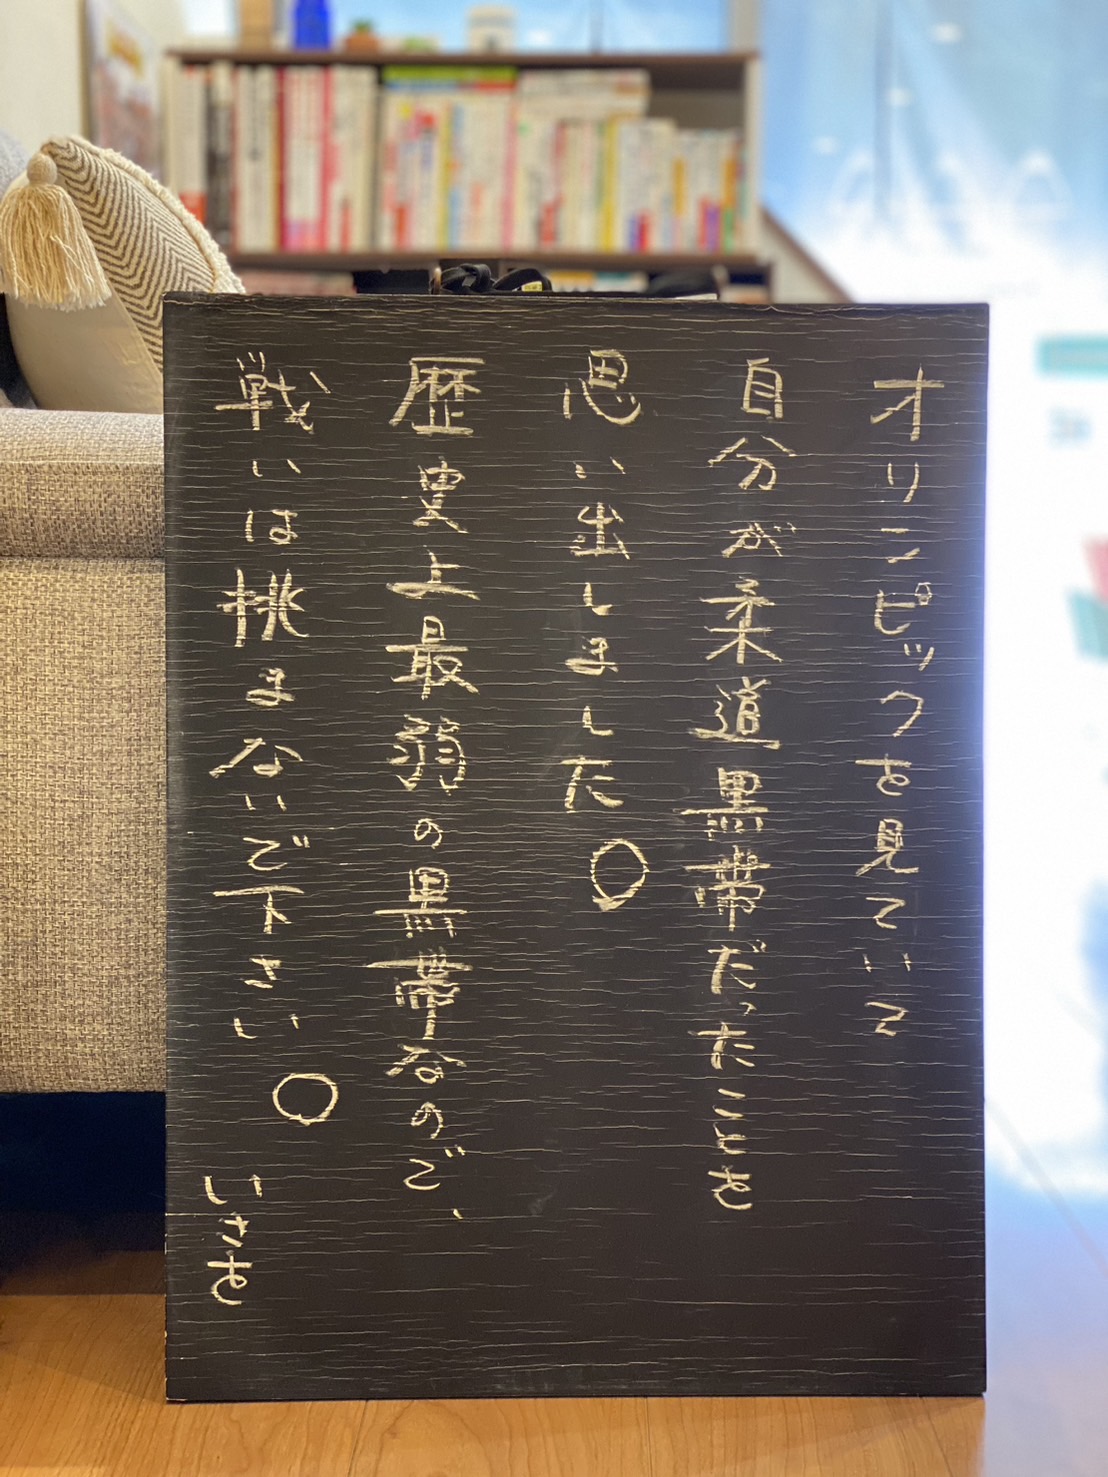 オリンピックを見ていて
自分が柔道黒帯だったことを
思い出しました。
歴史上最弱の黒帯なので、
戦いは挑まないで下さい。
いさを